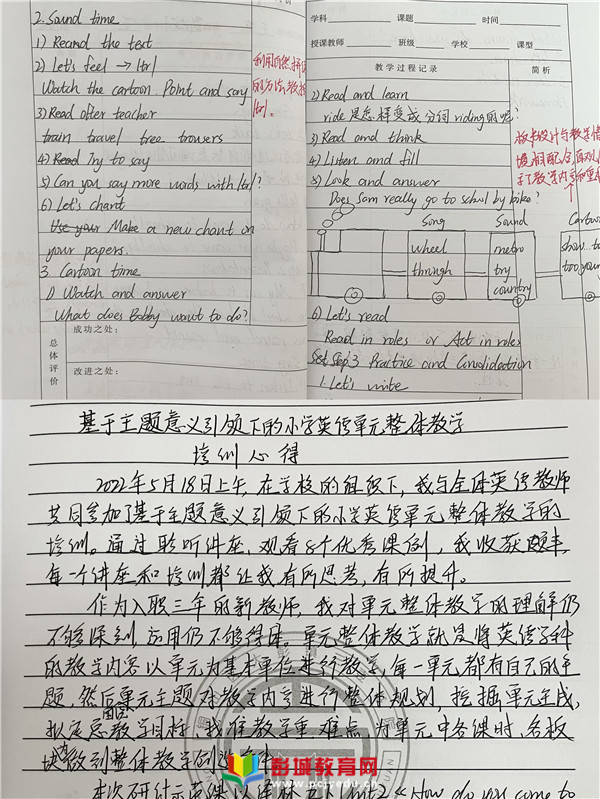 2. Sound time
1) Reand the text
2) Let's feel → /tr/
Watch the cartoon. Point and say
3) Read after teacher
train travel tree trousers
4) Read Try to say
5) Can you say more words with /tr/?
6) Let's chant
Use your Make a new chant on
your papers.
3. Cartoon time
1) Watch and answer
What does Bobby want to do?
利用自然拼读
的方法教授
/tr/.
总体评价
成功之处:
改进之处:
学科 课题 时间
授课教师 班级 学校 课型
教学过程记录 简析
2) Read and learn
ride是怎样变成分词riding的呢?
3) Read and think
4) Listen and fill
5) Look and answer
Does Sam really go to school by bike?
Song Sound Cartoon
wheel metro show
through try too young
country
6) Let's read
Read in roles or Act in roles
Step 3 Practice and Consolidation
1. Let's write
板书设计与教学情
境相配合,
了教学内容
基于主题意义引领下的小学英语单元整体教学
培训心得
2022年5月18日上午,在学校的组织下,我与全体英语教师
共同参加了基于主题意义引领下的小学英语单元整体教学的
培训。通过聆听讲座、观看8个优秀课例,我收获颇丰,
每一个讲座和培训都让我有所思考,有所提升。
作为入职三年的新教师,我对单元整体教学的理解仍
不够深刻,应用仍不够得体。单元整体教学就是将英语学科
的教学内容以单元为基本单位进行教学,每一单元都有自己的主
题,然后围绕单元主题对教学内容进行整体规划,挖掘单元主线,
拟定总教学目标,找准教学重难点,为单元中各课时、各板
块做到整体教学
本次研讨示范课以译林五下Unit2《How do you come to
彭城教育网
www.pcjy.edu.cn